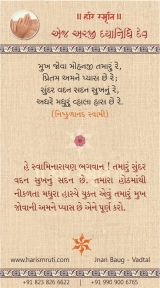 ॥ હરિ સ્મૃતિ ॥
એજ અરજી દયાનિધિ દેવ
મુખ જોવા મોહનજી તમારું રે,
પ્રિતમ અમને પ્યાસ છે રે;
સુંદર વદન સદન સુખનું રે,
અધરે મધુરું વ્હાલા હાસ છે રે.
(નિષ્કુળાનંદ સ્વામી)
હે સ્વામિનારાયણ ભગવાન ! તમારું સુંદર
વદન સુખનું સદન છે. તમારા હોઠમાંથી
નીકળતા મધુરા હાસ્યે યુક્ત એવું તમારું મુખ
જોવાની અમને પ્યાસ છે એને પૂર્ણ કરો.
www.harismruti.com
Jnan Baug - Vadtal
+91 823 826 6622
+91 990 900 6765